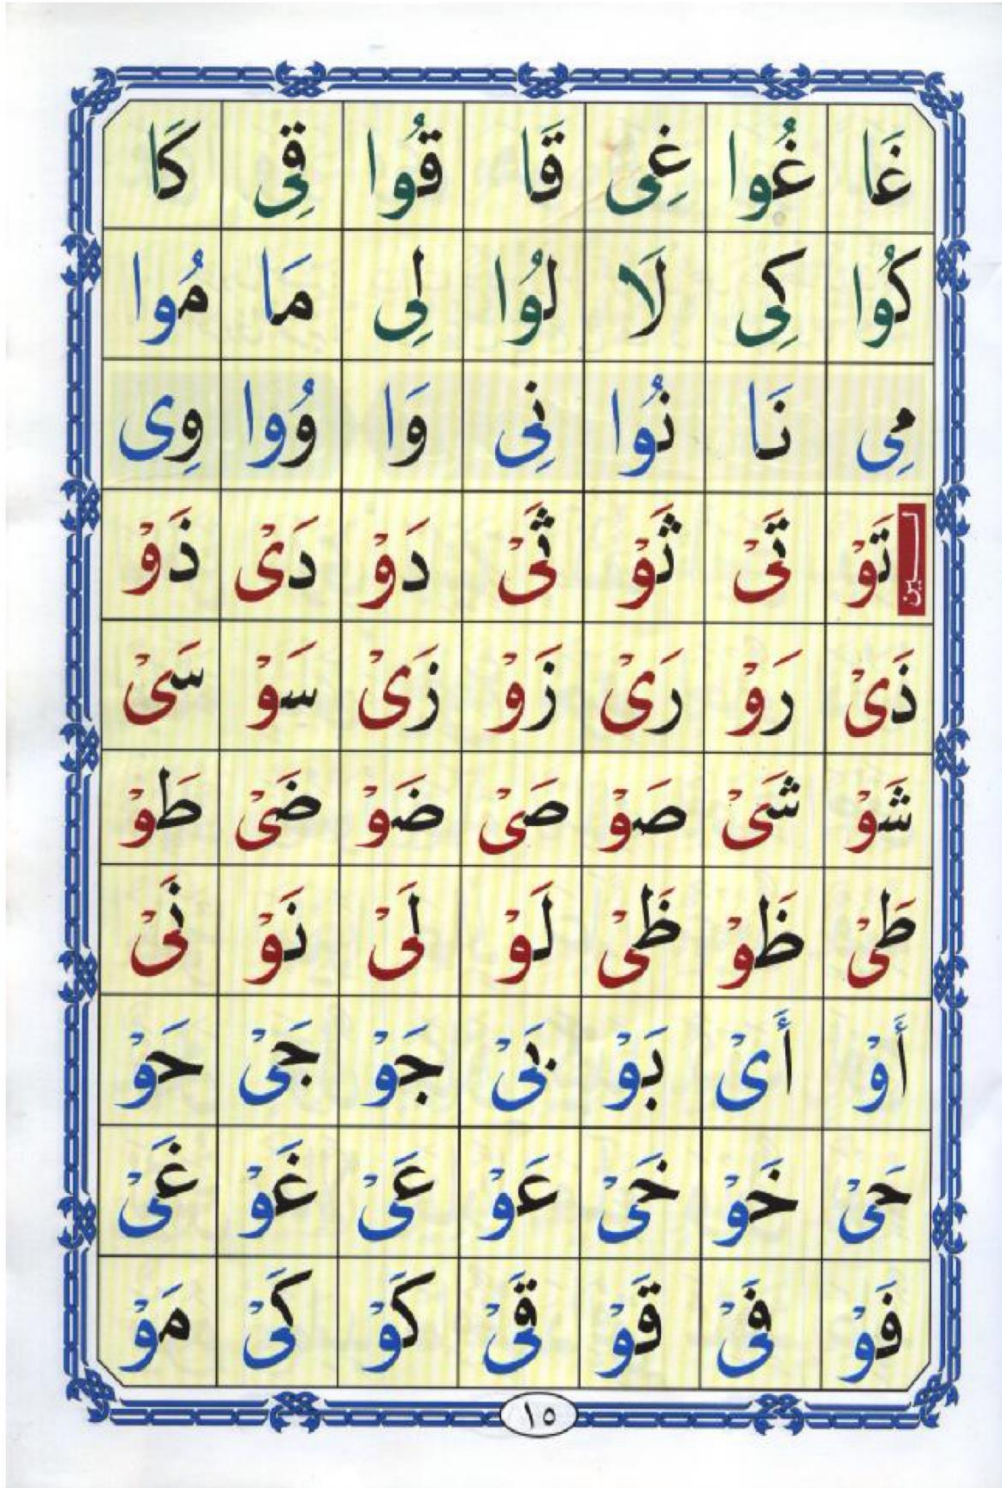 غَا غُوا غِى قَا قُوا قِى كَا
كُوا كِى لَا لُوا لِى مَا مُوا
مِى نَا نُوا نِى وَا وُوا وِى
لـيـن تَوْ تَىْ ثَوْ ثَىْ دَوْ دَىْ ذَوْ
ذَىْ رَوْ رَىْ زَوْ زَىْ سَوْ سَىْ
شَوْ شَىْ صَوْ صَىْ ضَوْ ضَىْ طَوْ
طَىْ ظَوْ ظَىْ لَوْ لَىْ نَوْ نَىْ
أَوْ أَىْ بَوْ بَىْ جَوْ جَىْ حَوْ
حَىْ خَوْ خَىْ عَوْ عَىْ غَوْ غَىْ
فَوْ فَىْ قَوْ قَىْ كَوْ كَىْ مَوْ
١٥